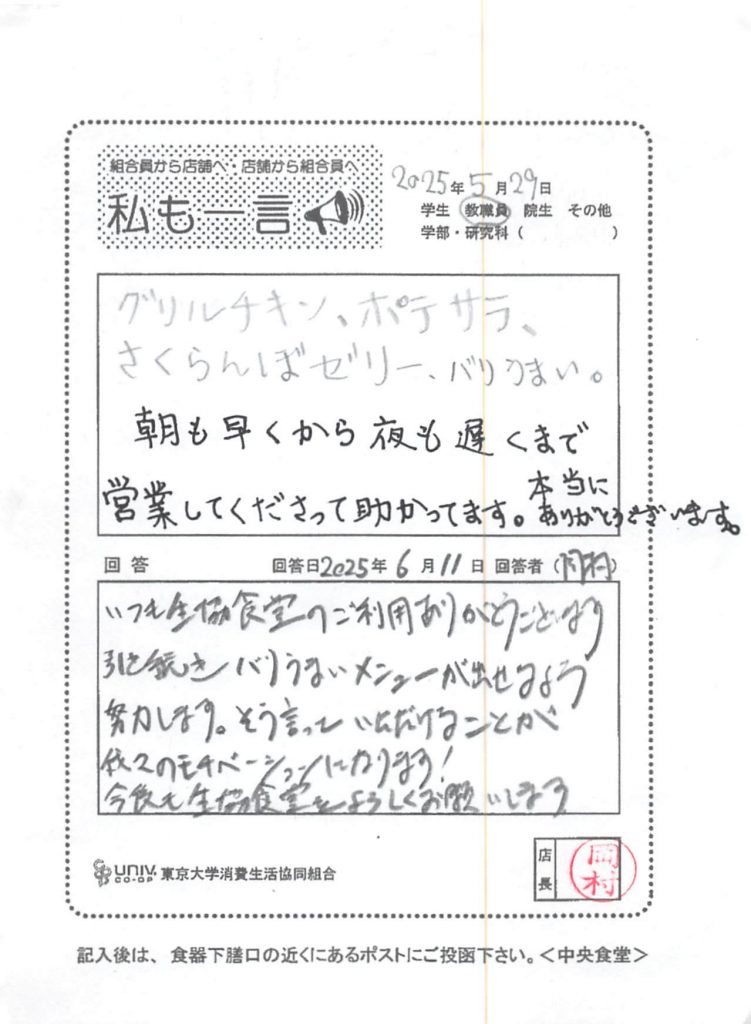 組合員から店舗へ・店舗から組合員へ
私も一言
2025年5月29日
学生 教職員 院生 その他
学部・研究科( )
グリルチキン、ポテサラ、
さくらんぼゼリー、バリうまい。
朝も早くから夜も遅くまで
営業してくださって助かってます。本当に
ありがとうございます。
回答 回答日2025年6月11日 回答者(岡村)
いつも生協食堂のご利用ありがとうございます
引き続きバリうまいメニューが出せるよう
努力します。そう言っていただけることが
我々のモチベーションになります!
今後も生協食堂をよろしくお願いします
UNIV. CO-OP 東京大学消費生活協同組合
店長 岡村
記入後は、食器下膳口の近くにあるポストにご投函下さい。<中央食堂>